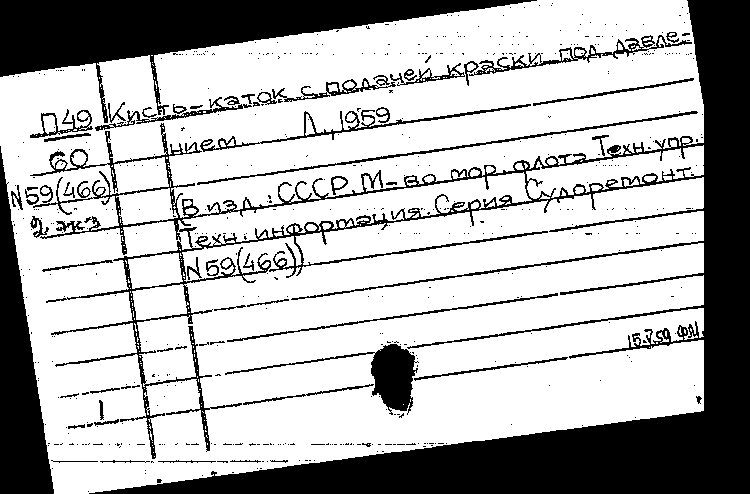 П49 Кисть-каток с подачей краски под давле-
60 нием. Л., 1959.
N59(466) (В изд.: СССР. М-во мор. флота Техн. упр.
2 экз Техн. информация. Серия Судоремонт.
N59(466))
15.V.59
1